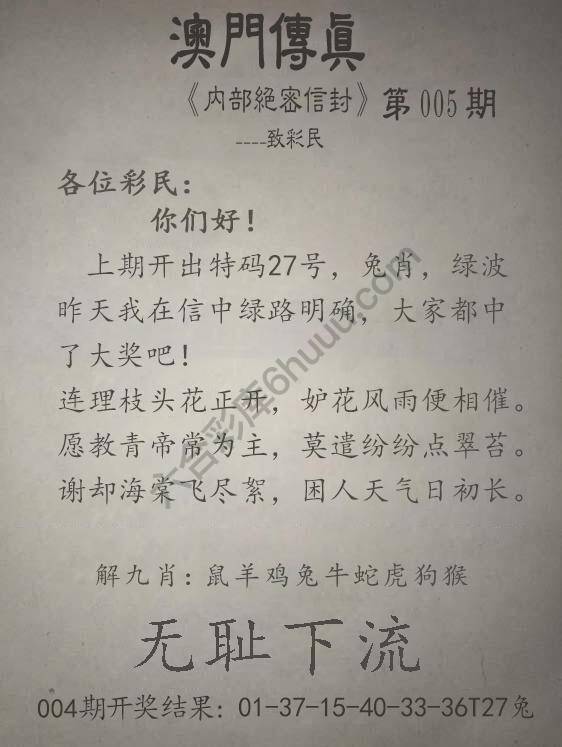 澳門傳眞
《内部絕密信封》第005期
----致彩民
各位彩民：
你们好！
上期开出特码27号，兔肖，绿波
昨天我在信中绿路明确，大家都中
了大奖吧！
连理枝头花正开，妒花风雨便相催。
愿教青帝常为主，莫遣纷纷点翠苔。
谢却海棠飞尽絮，困人天气日初长。
解九肖：鼠羊鸡兔牛蛇虎狗猴
无耻下流
004期开奖结果：01-37-15-40-33-36T27兔
六合彩库6huuu.com